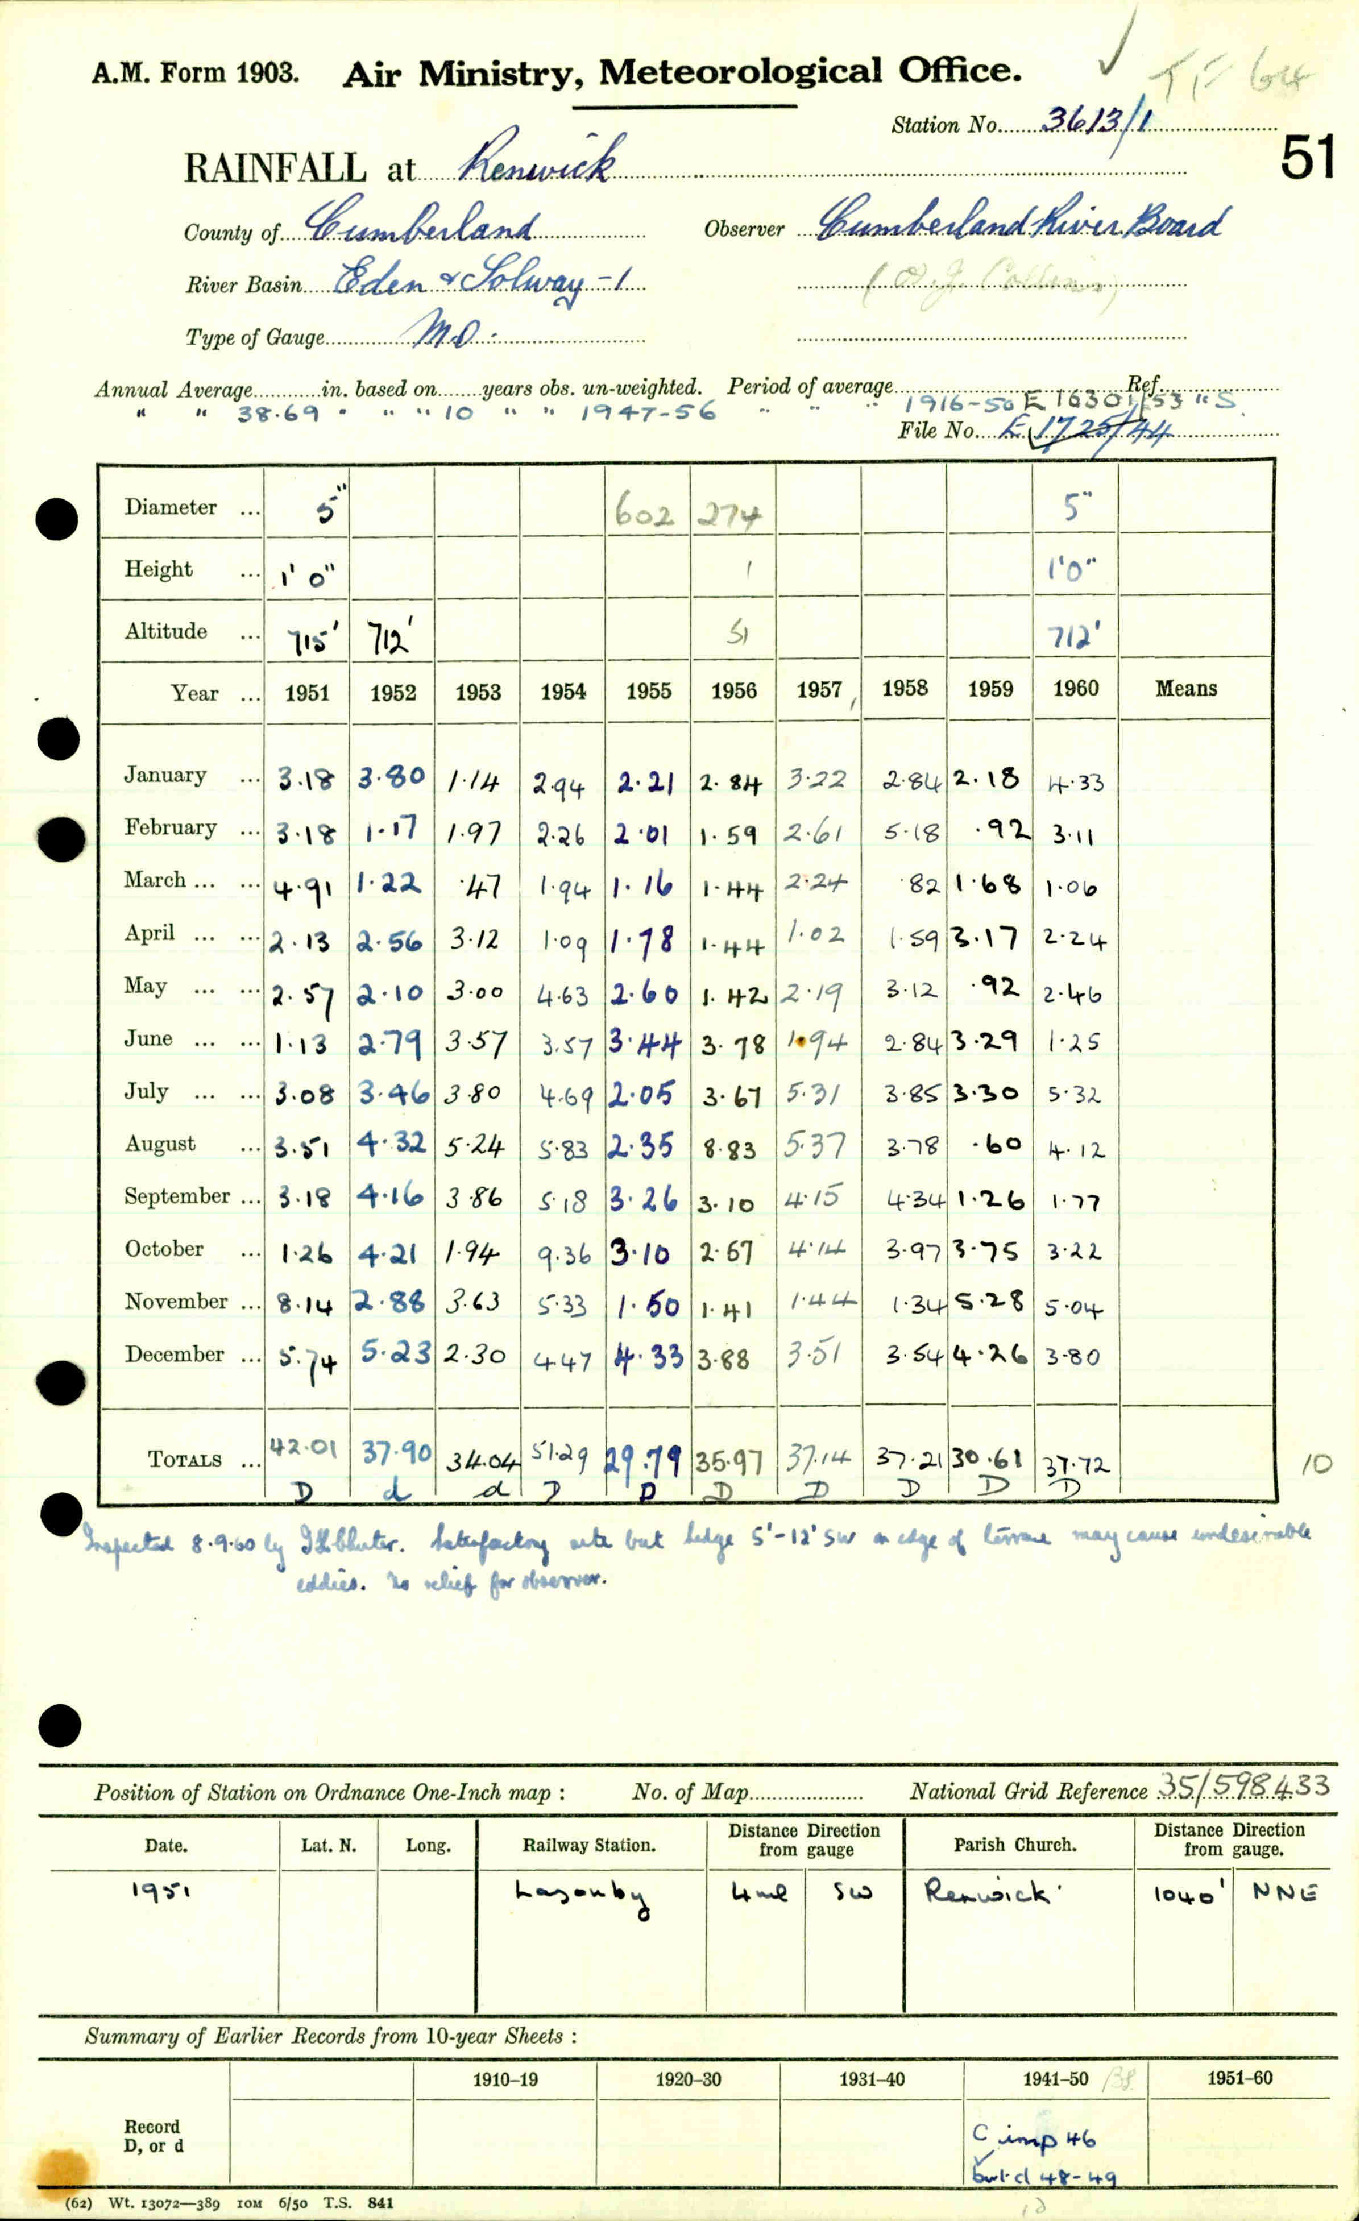 A.M. Form 1903. Air Ministry, Meteorological Office.
TF 64
Station No. 3613/1
51
RAINFALL at Renwick
County of Cumberland Observer Cumberland River Board
River Basin Eden & Solway -1
Type of Gauge MO.
Annual Average............in. based on.......years obs. un-weighted. Period of average Ref.
" " 38.69 " " " 10 " " 1947-56 " " " 1916-50 E 16301/53 "S.
File No. E 1725/44
Diameter ... 5" 602 274 5"
Height ... 1' 0" 1 1'0"
Altitude ... 715' 712' 51 712'
Year ... 1951 1952 1953 1954 1955 1956 1957 1958 1959 1960 Means
January ... 3.18 3.80 1.14 2.94 2.21 2.84 3.22 2.84 2.18 4.33
February ... 3.18 1.17 1.97 2.26 2.01 1.59 2.61 5.18 .92 3.11
March ... ... 4.91 1.22 .47 1.94 1.16 1.44 2.24 .82 1.68 1.06
April ... ... 2.13 2.56 3.12 1.09 1.78 1.44 1.02 1.59 3.17 2.24
May ... ... 2.57 2.10 3.00 4.63 2.60 1.42 2.19 3.12 .92 2.46
June ... ... 1.13 2.79 3.57 3.57 3.44 3.78 1.94 2.84 3.29 1.25
July ... ... 3.08 3.46 3.80 4.69 2.05 3.67 5.31 3.85 3.30 5.32
August ... 3.51 4.32 5.24 5.83 2.35 8.83 5.37 3.78 .60 4.12
September ... 3.18 4.16 3.86 5.18 3.26 3.10 4.15 4.34 1.26 1.77
October ... 1.26 4.21 1.94 9.36 3.10 2.57 4.14 3.97 3.75 3.22
November ... 8.14 2.88 3.63 5.33 1.50 1.41 1.44 1.34 5.28 5.04
December ... 5.74 5.23 2.30 4.47 4.33 3.88 3.51 3.54 4.26 3.80
TOTALS ... 42.01 37.90 34.04 51.29 29.79 35.97 37.14 37.21 30.61 37.72 10
D d d D D D D D D D
Inspected 8.9.60 by Satisfactory site but hedge 5'-12' SW on edge of terrace may cause undesirable
eddies. No relief for observer.
Position of Station on Ordnance One-Inch map : No. of Map.................... National Grid Reference 35/598433
Date. Lat. N. Long. Railway Station. Distance Direction from gauge Parish Church. Distance Direction from gauge.
1951 Lazonby 4 ml SW Renwick 1040' NNE
Summary of Earlier Records from 10-year Sheets :
1910–19 1920–30 1931–40 1941–50 1951–60
Record
D, or d
C imp 46
but d 48-49
(62) Wt. 13072—389 10M 6/50 T.S. 841